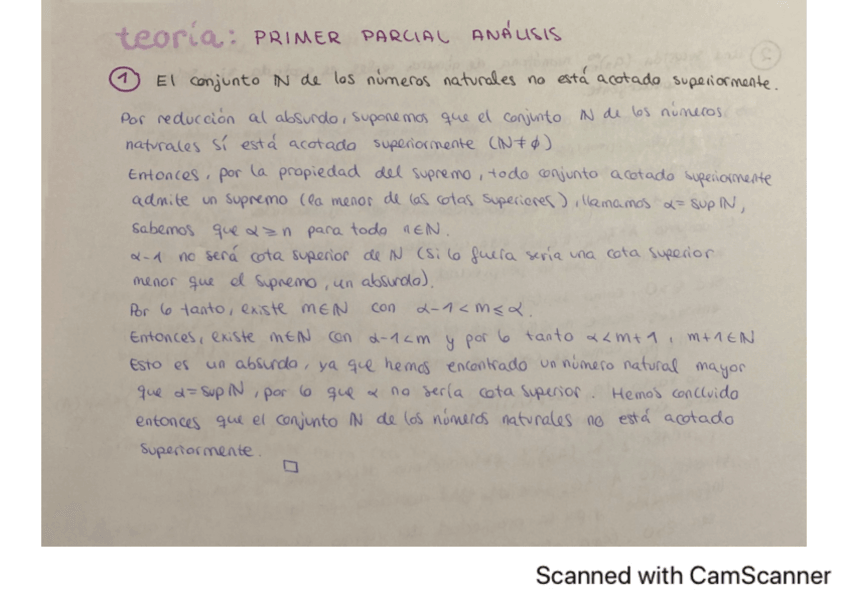 teoría: PRIMER PARCIAL ANÁLISIS
1 El conjunto ℕ de los números naturales no está acotado superiormente.
Por reducción al absurdo, suponemos que el conjunto ℕ de los números
naturales sí está acotado superiormente (ℕ≠∅)
Entonces, por la propiedad del supremo, todo conjunto acotado superiormente
admite un supremo (la menor de las cotas superiores), llamamos α= sup ℕ,
Sabemos que α≥n para todo n∈ℕ.
α-1 no será cota superior de ℕ (si lo fuera sería una cota superior
menor que el supremo, un absurdo).
Por lo tanto, existe m∈ℕ con α-1<m≤α.
Entonces, existe m∈ℕ con α-1<m y por lo tanto α<m+1, m+1∈ℕ
Esto es un absurdo, ya que hemos encontrado un número natural mayor
que α=sup ℕ, por lo que α no sería cota superior. Hemos concluido
entonces que el conjunto ℕ de los números naturales no está acotado
superiormente. □
Scanned with CamScanner